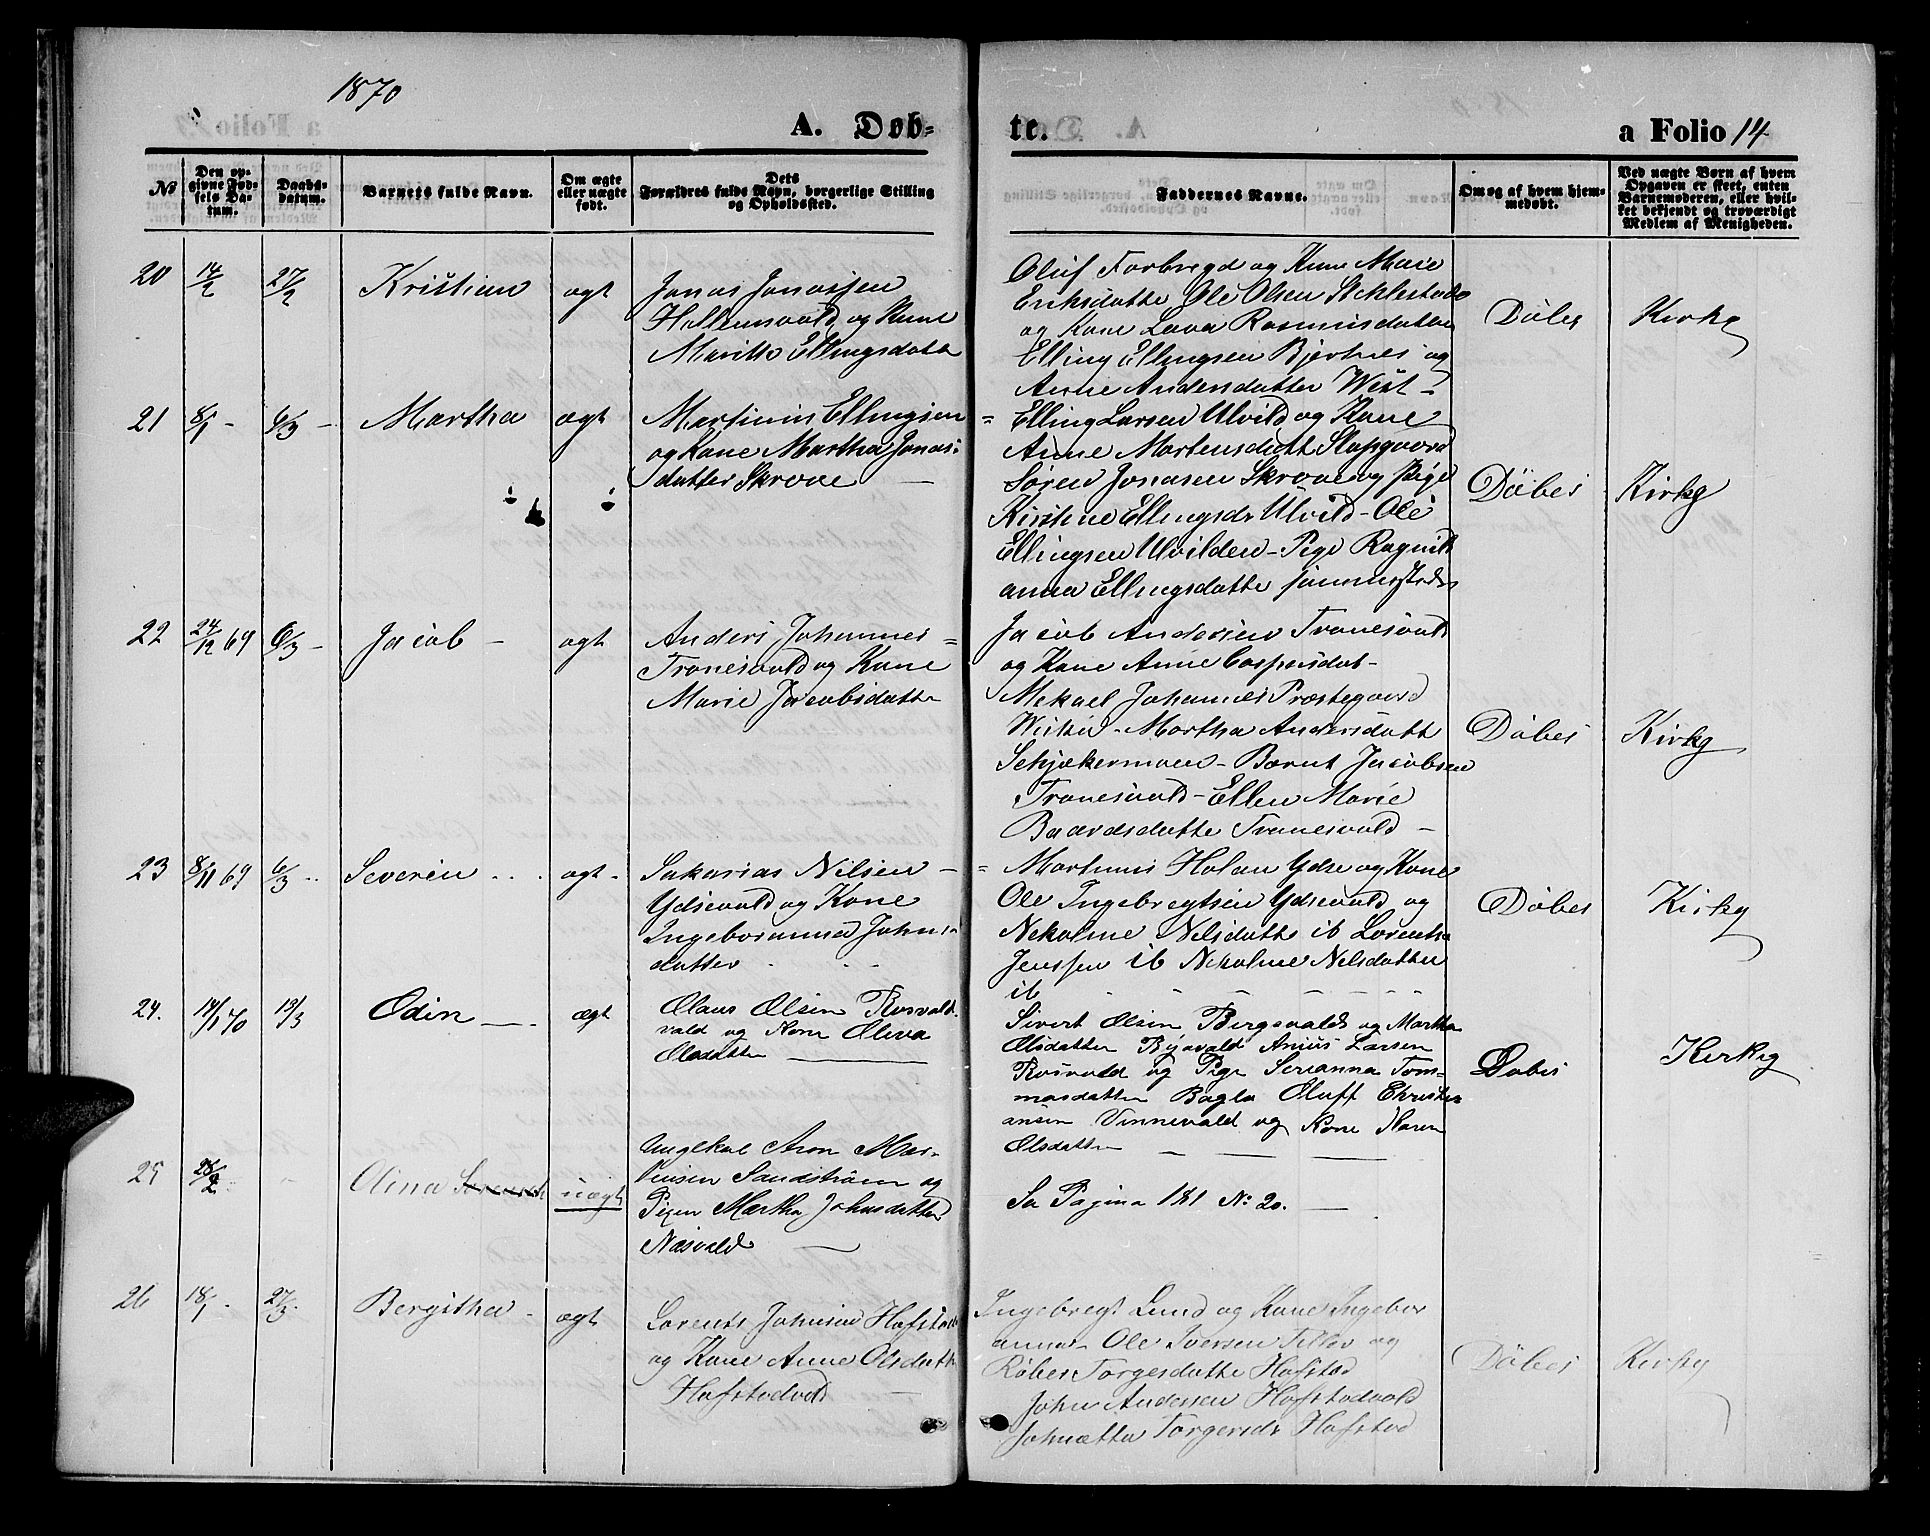 1870
A. Døb-
te.
a Folio 14
No
Den op-
givne Fød-
sels Da-
tum.
Daabs-
datum.
Barnets fulde Navn.
Om ægte
eller uægte
født.
Dets
Forældres fulde Navn, borgerlige Stilling
og Opholdssted.
Faddernes Navne.
Om og af hvem hjem-
medøbt.
Ved uægte Børn af hvem
Opgaven er skeet, enten
Barnemoderen, eller hvil-
ket bekjendt og troværdigt
Medlem af Menigheden.
20 14/2 27/2 Kristian ægt
Jonas Jonassen
og Kone
Ellingsdatt
Oluf Forbregd og Kone Marie
Eriksdatte Ole Olsen Stiklestad
og Kone Rasmusdatter
Elling Ellingsen Bjertnes og
Anne Andersdatter West-
Døbes Kirkg
21 8/1 - 6/3 - Martha ægt
Martinus Ellingsen
og Kone Martha Jonas-
datter Skrove -
Elling Larsen Ulvild og Kone
Anne Mortensdatt
Søren Jonasen Skrove og Pige
Kirstine Ellingsdr Ulvild - Ole
Ellingsen Ulvilden - Pige Ragnild
anna Ellingsdatte
Døbes Kirkg
22 24/12 69 6/3 - Jacob - ægt
Anders Johannes=
Tronesvald og Kone
Marie Jacobsdatte
Jacob Andersen Tronesvald
og Kone Anne Caspersdat-
Mekael Johannes Præstegaard
Martha Andersdatt
Schjækermoen - Bernt Jacobsen
Tronesvald - Ellen Marie
Baardsdatte Tronesvald -
Døbes Kirkg
23 8/11 69 6/3 Severin ægt -
Sakarias Nilsen -
Ydsevald og Kone
Ingeboranna Johns-
datter
Martinus Holan Ydse og Kone
Ole Ingebregtsen Ydsevald og
Nekoline Nelsdatte ib Lorents
Jenssen ib Nekoline Nelsdatter
ib
Døbes Kirkg
24. 14/1 70 13/3 Odin ægt
Olaus Olsen Rosvald
vald og Kone Oleva
Olsdatter
Sivert Olsen Bergsvald og Martha
Olsdatter Larsen
Rosvald og Pige Serianna Tom-
masdatter Bagla Oluff Christi-
ansen Vinnevald og Kone Karen
Olsdatter
Døbes Kirkg
25 28/2 Olina uægt
Ungekal Aron Mar-
tinsen Sandstrøm og
Pigen Martha Johnsdatter
Næsvald
Se Pagina 181 No: 20.
26 18/1 - 27/3 Bergitha - ægt
Lorents Johnsen Hofstad
og Kone Anne Olsdatt
Hofstadvald
Ingebregt Lund og Kone Ingebor
anna - Ole Iversen Tiller og
Torgersdatte Hofstad
John Andersen Hofstadvald
Johnetta Torgersdr Hofstad
Døbes Kirkg